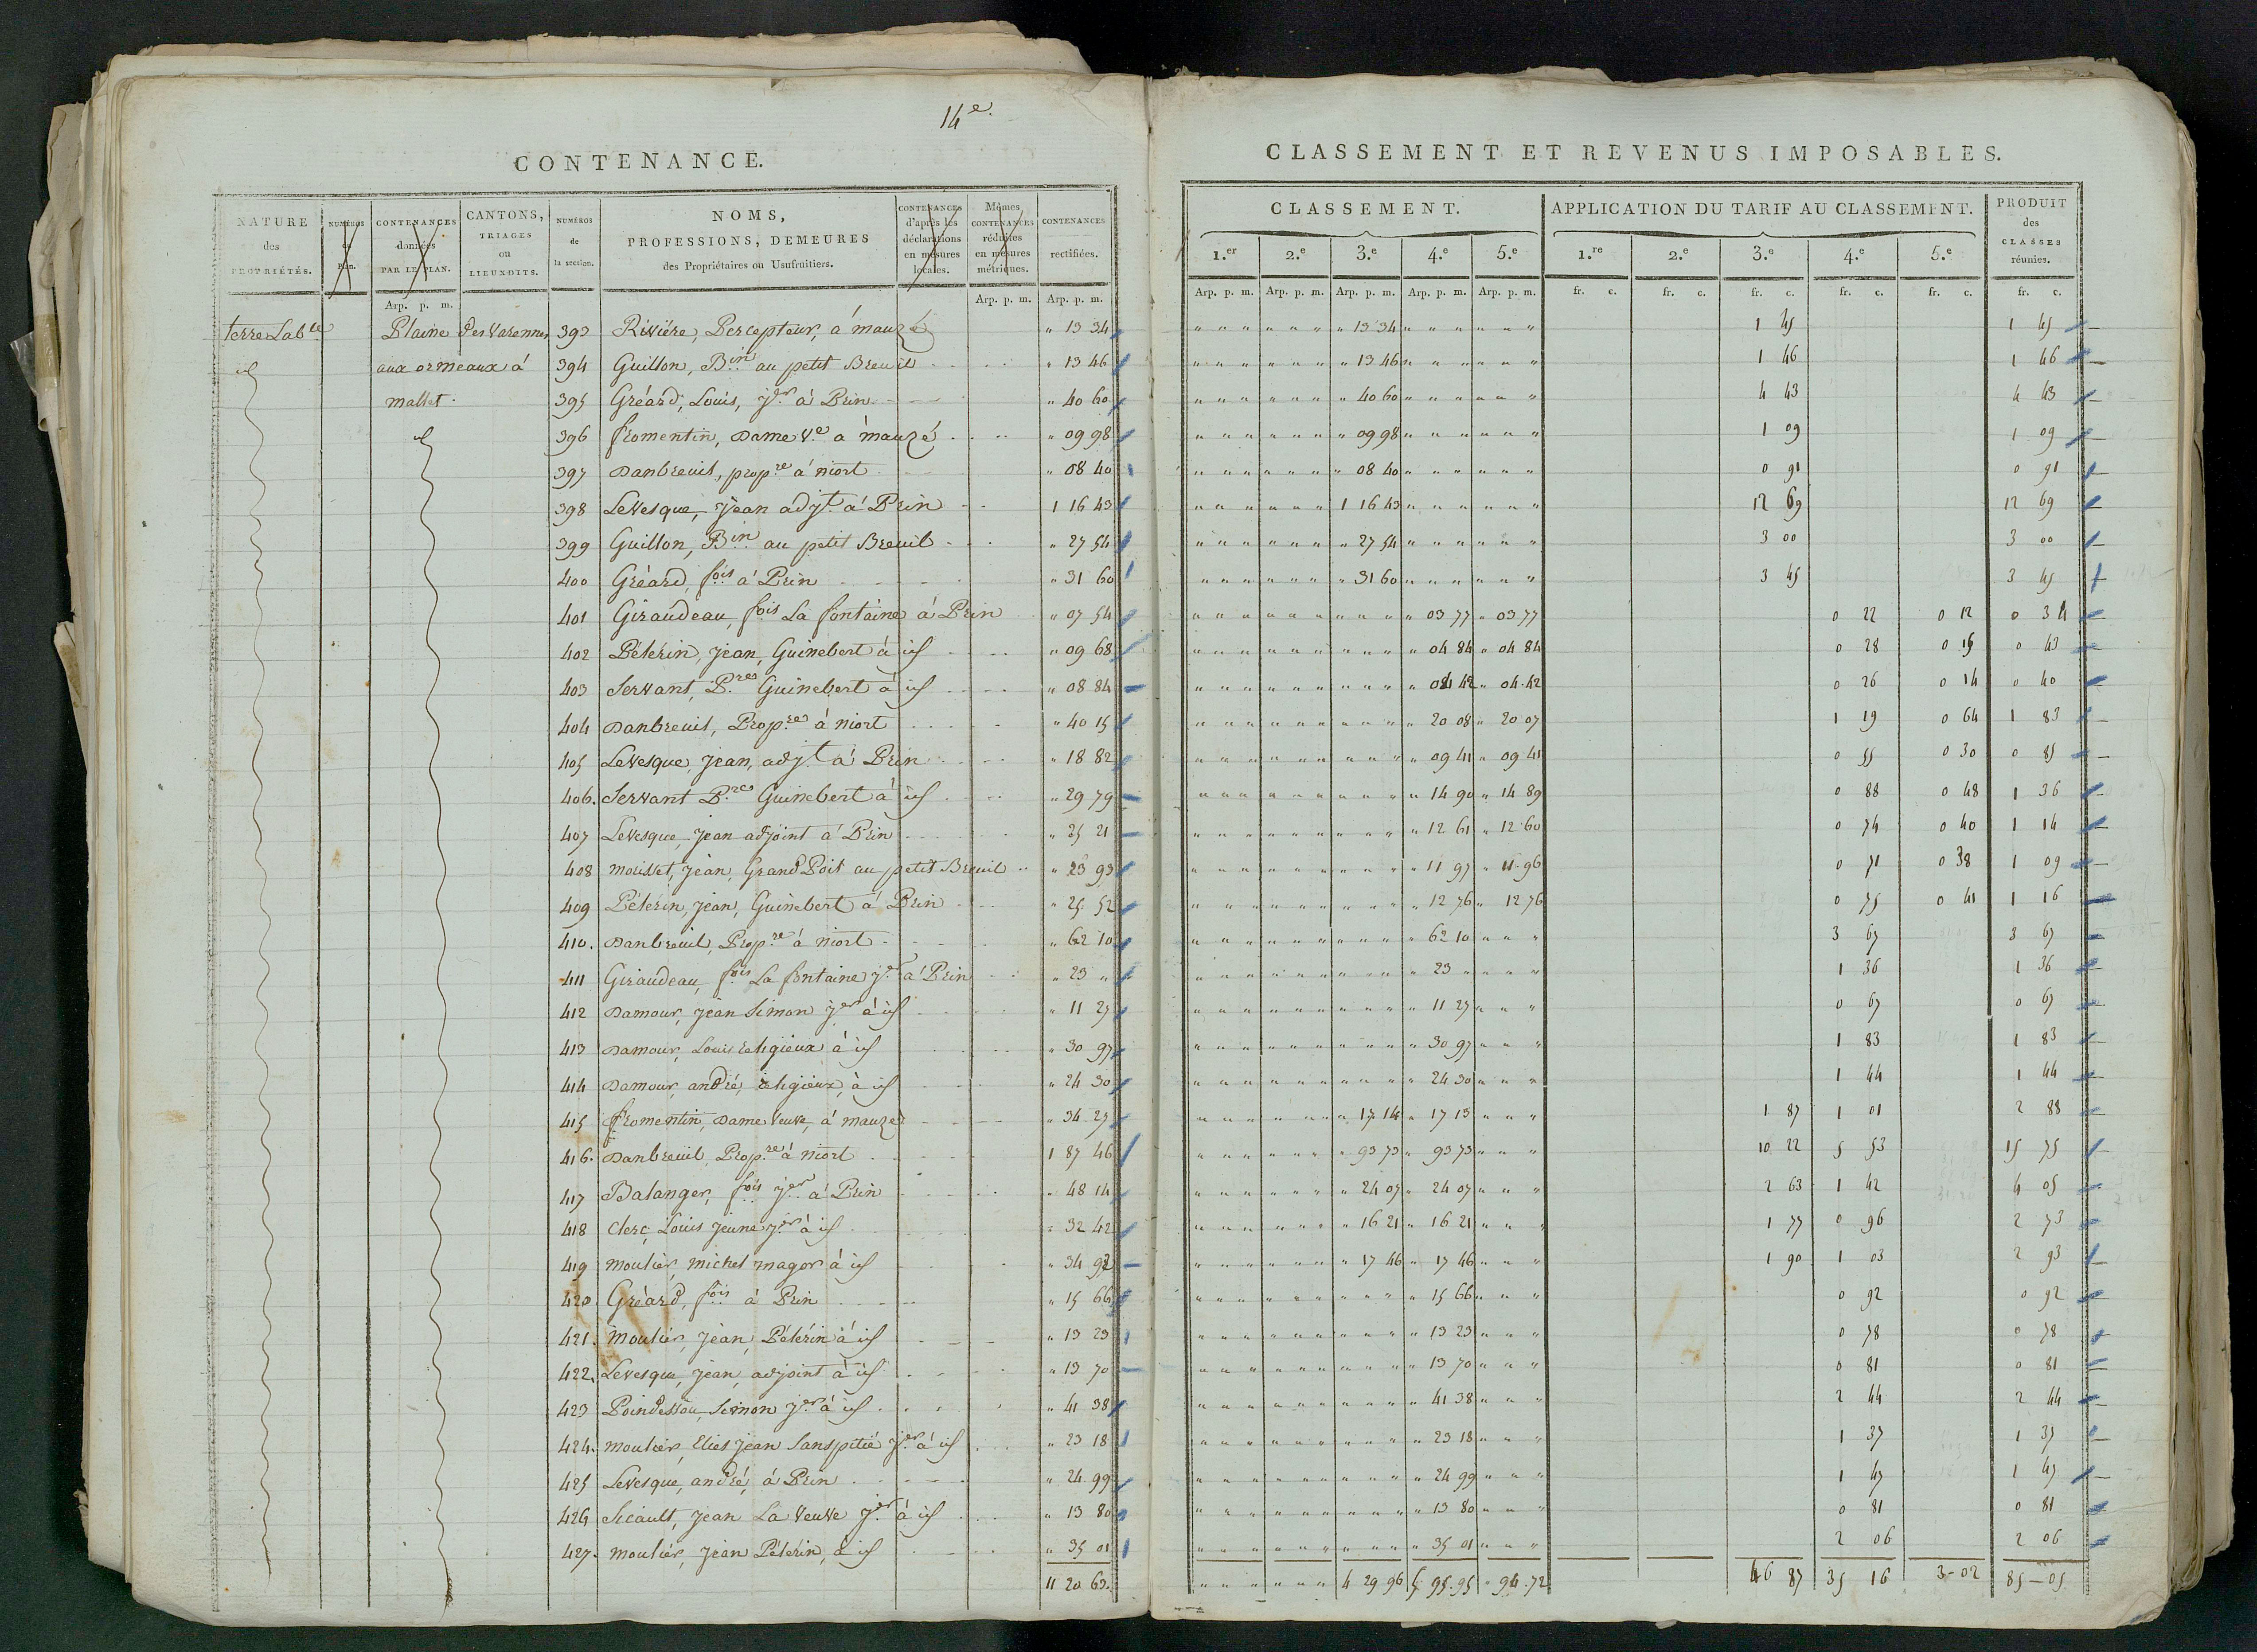 14e.
CONTENANCE.
NATURE des PROPRIÉTÉS. NUMÉROS du Plan. CONTENANCES données PAR LE PLAN. CANTONS, TRIAGES ou LIEUXDITS. NUMÉROS de la section. NOMS, PROFESSIONS, DEMEURES des Propriétaires ou Usufruitiers. CONTENANCES d'après les déclarations en mesures locales. Mêmes CONTENANCES réduites en mesures métriques. CONTENANCES rectifiées.
Arp. p. m. Arp. p. m. Arp. p. m.
terre Lable Plaine des Varennes 393 Rivière, Percepteur, à mauzé " 13 34
id aux ormeaux à 394 Guillon, Bin au petit Breuil " 13 46
mallet. 395 Gréard, Louis, jer à Prin " 40 60
id 396 fromentin, Dame Ve à mauzé " 09 98
397 Danbreuil, propre à niort " 08 40
398 Levesque, Jean adjt à Prin 1 16 43
399 Guillon, Bin au petit Breuil " 27 54
400 Gréard, fois à Prin " 31 60
401 Giraudeau, fois La fontaine à Prin " 07 54
402 Pélerin, Jean, Guinebert à id " 09 68
403 Servant, Pre Guinebert à id " 08 84
404 Danbreuil, Propre à niort " 40 15
405 Levesque, Jean, adjt à Prin " 18 82
406. Servant Pre Guinebert à id " 29 79
407 Levesque, Jean adjoint à Prin " 25 21
408 mousset, Jean, Grand Poit au petit Breuil " 23 93
409 Pélerin, Jean, Guinebert à Prin " 25 52
410. Danbreuil, Propre à niort " 62 10
411 Giraudeau, fois La fontaine jer à Prin " 23 "
412 Damour, Jean Simon jer à id " 11 27
413 Damour, Louis religieux à id " 30 97
414 Damour, andré, religieux, à id " 24 30
415 fromentin, Dame Veuve, à mauzé " 34 27
416. Danbreuil, Propre à niort 1 87 46
417 Balanger, fois jer à Prin " 48 14
418 Clerc, Louis jeune jer à id " 32 42
419 moulier, michel magor à id " 34 92
420. Gréard, fois à Prin " 15 66
421. moulier, Jean, Pélerin à id " 13 23
422. Levesque, Jean, adjoint à id " 13 70
423 Poindessou, Simon jer à id " 41 38
424. moulier, Elies Jean Sanspitié jer à id " 23 18
425 Levesque, andré, à Prin " 24 99
426 Sicault, Jean La Veuve jer à id " 13 80
427. moulier, Jean Pélerin, à id " 35 01
11 20 63.
CLASSEMENT ET REVENUS IMPOSABLES.
CLASSEMENT. APPLICATION DU TARIF AU CLASSEMENT. PRODUIT des CLASSES réunies.
1.er 2.e 3.e 4.e 5.e 1.re 2.e 3.e 4.e 5.e
Arp. p. m. Arp. p. m. Arp. p. m. Arp. p. m. Arp. p. m. fr. c. fr. c. fr. c. fr. c. fr. c. fr. c.
" 13 34 1 45 1 45
" 13 46 1 46 1 46
" 40 60 4 43 4 43
" 09 98 1 09 1 09
" 08 40 0 91 0 91
1 16 43 12 69 12 69
" 27 54 3 00 3 00
" 31 60 3 45 3 45
" 03 77 " 03 77 0 22 0 12 0 34
" 04 84 " 04 84 0 28 0 15 0 43
" 04 42 " 04.42 0 26 0 14 0 40
" 20 08 " 20 07 1 19 0 64 1 83
" 09 41 " 09 41 0 55 0 30 0 85
" 14 90 " 14 89 0 88 0 48 1 36
" 12 61 " 12 60 0 74 0 40 1 14
" 11 97 " 11.96 0 71 0 38 1 09
" 12 76 " 12 76 0 75 0 41 1 16
" 62 10 3 67 3 67
" 23 " 1 36 1 36
" 11 27 0 67 0 67
" 30 97 1 83 1 83
" 24 30 1 44 1 44
" 17 14 " 17 13 1 87 1 01 2 88
" 93 73 " 93 73 10 22 5 53 15 75
" 24 07 " 24 07 2 63 1 42 4 05
" 16 21 " 16 21 1 77 0 96 2 73
" 17 46 " 17 46 1 90 1 03 2 93
" 15 66 0 92 0 92
" 13 23 0 78 0 78
" 13 70 0 81 0 81
" 41 38 2 44 2 44
" 23 18 1 37 1 37
" 24 99 1 47 1 47
" 13 80 0 81 0 81
" 35 01 2 06 2 06
4 29 96 5 95.95 " 94.72 46 87 35 16 3-02 85-05